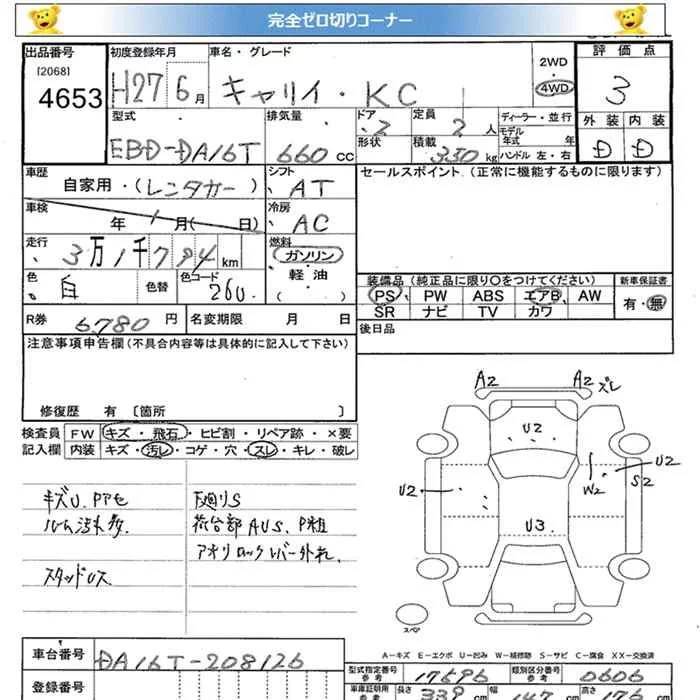 完全ゼロ切りコーナー
出品番号 初度登録年月 車名・グレード 評価点
[2068]
4653 H27 6月 キャリイ・KC 2WD・4WD 3
型式 排気量 ドア 定員 ディーラー・並行 外装 内装
EBD-DA16T 660 CC 2 2人 モデル年式 年 D D
形状 積載 350 kg ハンドル 左・右
車歴 シフト セールスポイント (正常に機能するものに限ります)
自家用・(レンタカー) AT
車検 冷房
年 月( 日) AC
走行 燃料
3万1千794km ガソリン・軽油
色 色替 色コード ( ) 装備品(純正品に限り○をつけてください) 新車保証書
白 260 PS PW ABS エアB AW 有・無
SR ナビ TV カワ
R券 6,780円 名変期限 月 日 後日品
注意事項申告欄(不具合内容等は具体的に記入して下さい)
修復歴 有 〔箇所 〕
検査員 FW キズ・飛石・ヒビ割・リペア跡・×要
記入欄 内装 キズ・汚レ・コゲ・穴・スレ・キレ・破レ
キズU、Pアセ
ルーム汚れ多
スタッドレス
下廻りS
荷台部AUS、P粗
アオリロックレバー外れ
A2 A2 ズレ
U2
U2 W2 U2
S2
U3
スペア
A-キズ E-エクボ U-凹み W-補修跡 S-サビ C-腐食 XX-交換済
車台番号 DA16T-208126
登録番号
型式指定番号 参考 17696 類別区分番号 参考 0606
車庫証明用 参考 長さ 339 cm 幅 147 cm 高さ 176 cm